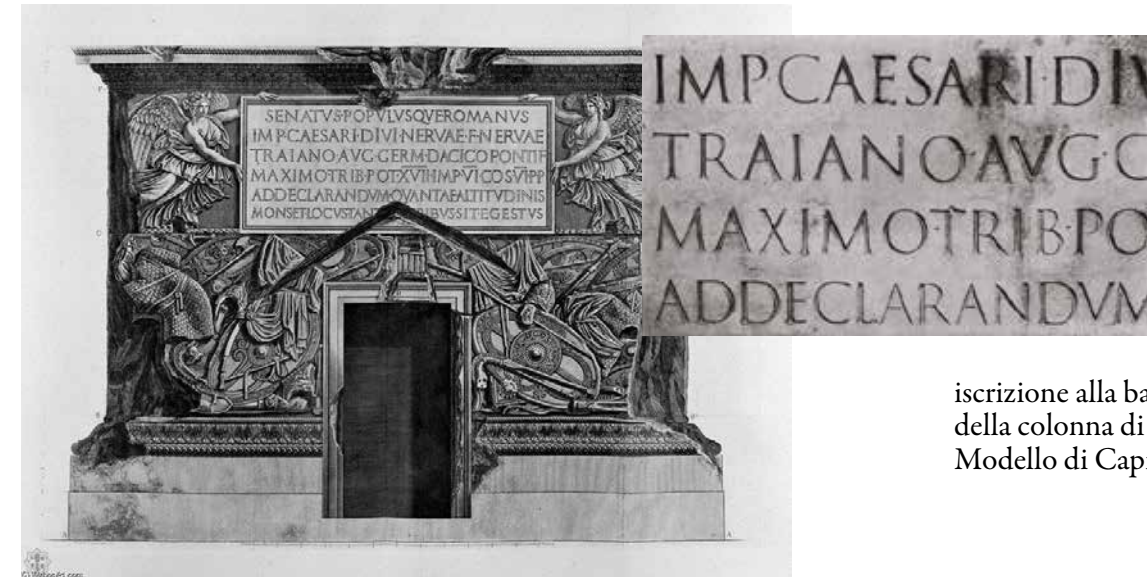 SENATVS·POPVLVSQVEROMANVS
IMP·CAESARI·DIVI·NERVAE·F·NERVAE
TRAIANO·AVG·GERM·DACICO PONTIF
MAXIMOTRIB·POT·XVII·IMP·VI COS·VI·PP
ADDECLARANDVMQVANTAEALTITVDINIS
MONSETLOCVSTAN RIBVSSITEGESTVS
IMPCAESARI·DIV
TRAIANO·AVG·G
MAXIMOTRIB·PO
ADDECLARANDVM
iscrizione alla ba
della colonna di
Modello di Cap